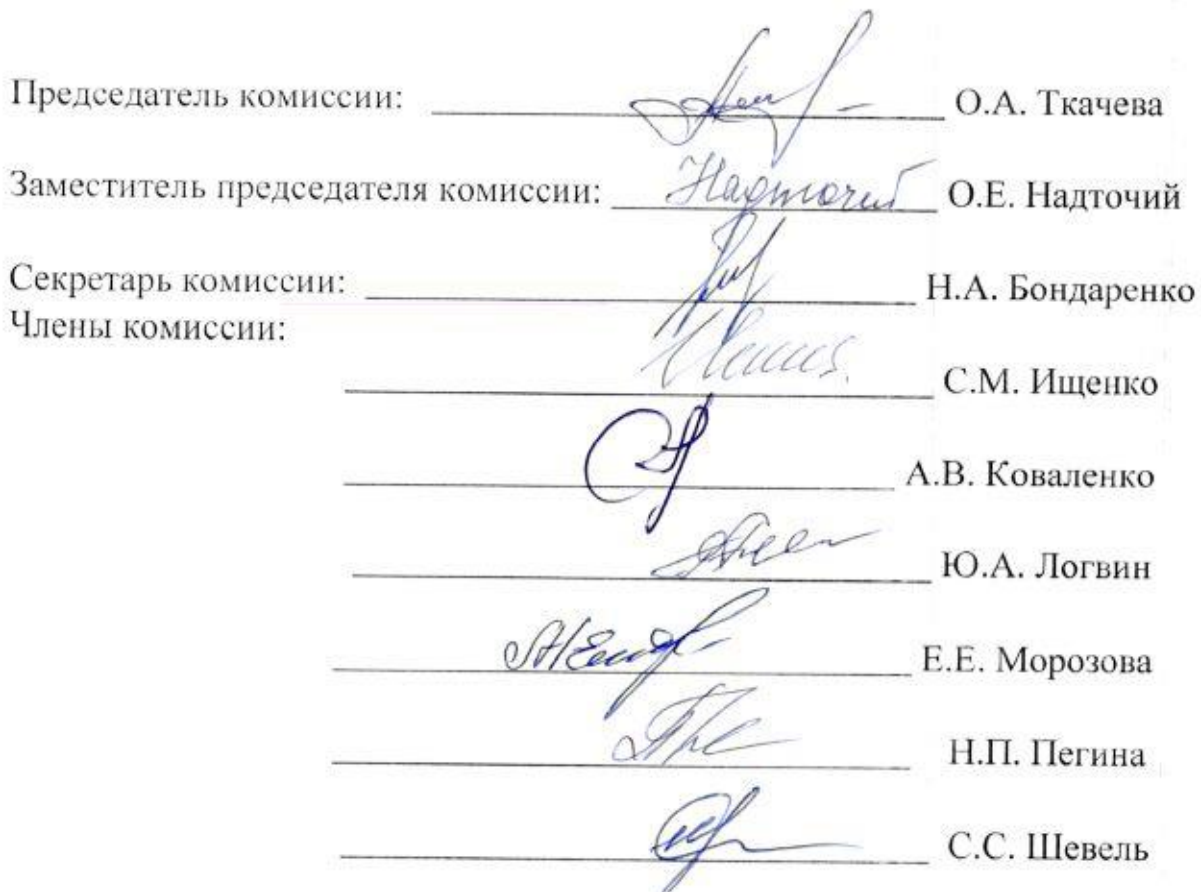 Председатель комиссии: О.А. Ткачева
Заместитель председателя комиссии: Надточий О.Е. Надточий
Секретарь комиссии: Н.А. Бондаренко
Члены комиссии:
С.М. Ищенко
А.В. Коваленко
Ю.А. Логвин
Е.Е. Морозова
Н.П. Пегина
С.С. Шевель